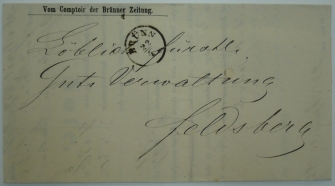 Vom Comptoir der Brünner Zeitung.
BRÜNN
Löbliche fürstl.
Guts Verwaltung
Feldsberg